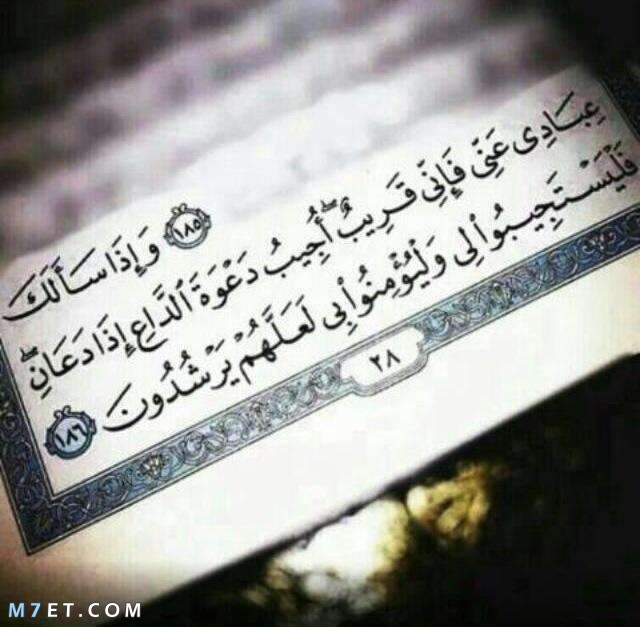 ١٨٥ وَإِذَا سَأَلَكَ
عِبَادِى عَنِّى فَإِنِّى قَرِيبٌ ۖ أُجِيبُ دَعْوَةَ ٱلدَّاعِ إِذَا دَعَانِ ۖ
فَلْيَسْتَجِيبُوا۟ لِى وَلْيُؤْمِنُوا۟ بِى لَعَلَّهُمْ يَرْشُدُونَ ١٨٦
٢٨
M7ET.COM